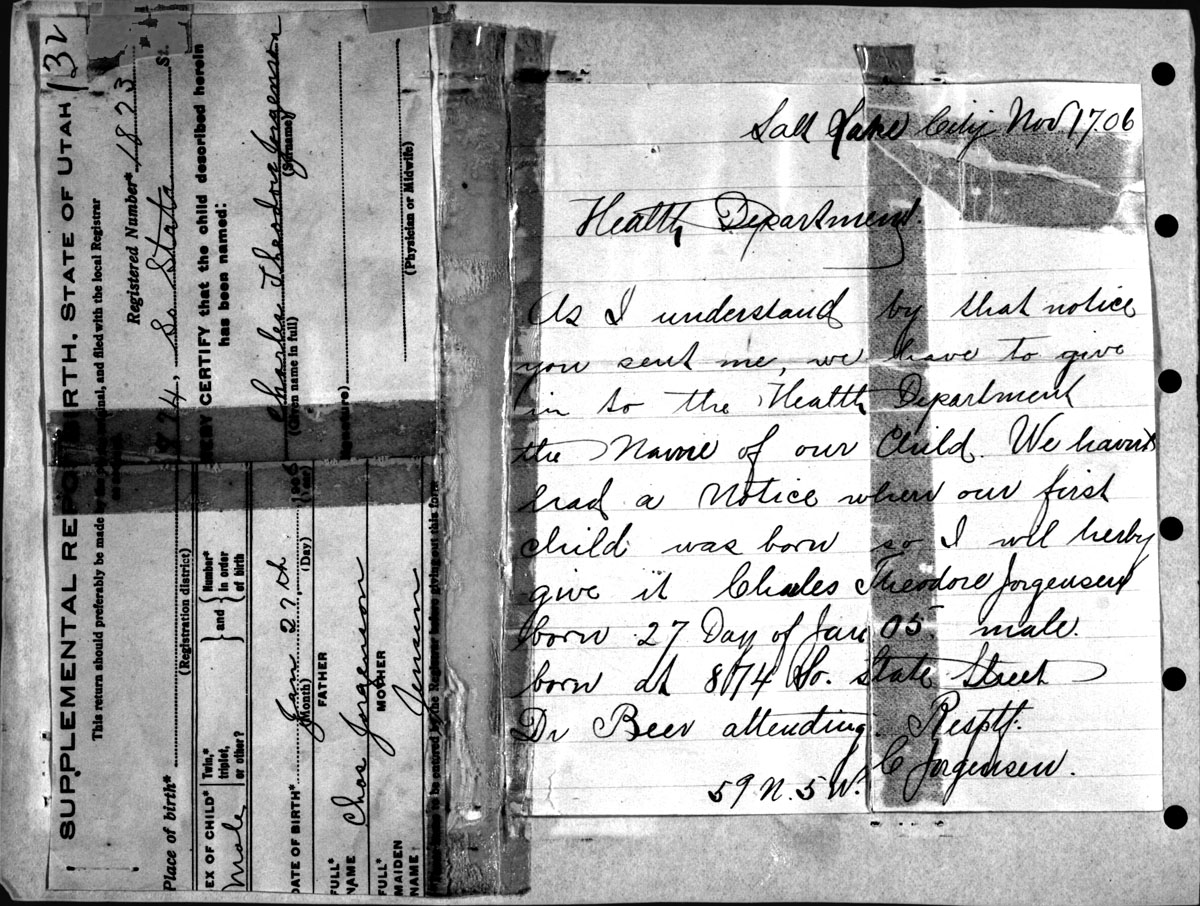 SUPPLEMENTAL REPORT OF BIRTH. STATE OF UTAH
132
This return should preferably be made by the original, and filed with the local Registrar
Registered Number* 1823
Place of birth* 874, So State St.
(Registration district)
SEX OF CHILD* Male
Twin,* triplet, or other?
and
Number* in order of birth
HEREBY CERTIFY that the child described herein
has been named:
DATE OF BIRTH* Jan 27th
(Month) (Day) (Year)
Charles Theodore Jorgenson
(Given name in full) (Surname)
FULL* NAME
FATHER
Chas Jorgenson
(Signature)
FULL* MAIDEN NAME
MOTHER
Jensen
(Physician or Midwife)
to be entered by the Registrar before giving out this form
Salt Lake City Nov. 17.06
Health Department
As I understand by that notice
you sent me, we have to give
in to the Health Department
the Name of our Child. We havnt
had a Notice when our first
child was born so I will herby
give it Charles Theodore Jorgensen
born 27 Day of Jan 05. male.
born at 874 So. State Street
Dr Beer attending. Resptf.
C Jorgensen.
59 N. 5 W.